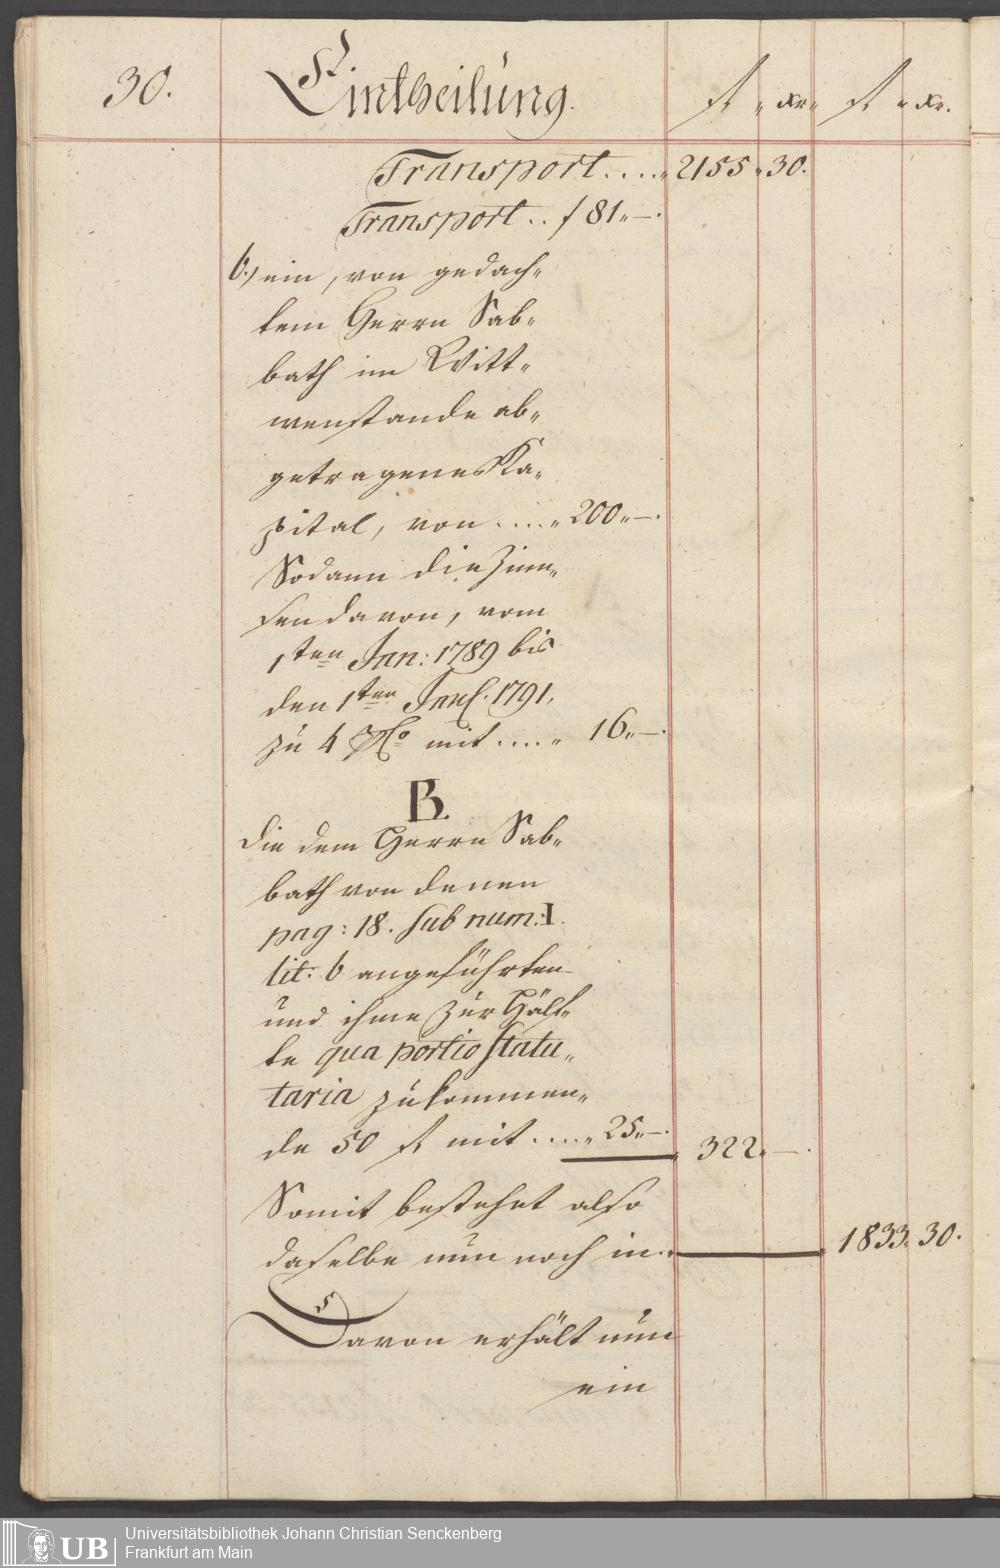 30.
Eintheilung.
f „ xr „ f „ xr.
Transport .... „ 2155 „ 30.
Transport .. f 81 „ —.
b.) ein, von gedach„
tem Herrn Sab„
bath im Witt„
wenstande ab„
getragenes Ka„
pital, von .... „ 200 „ —.
Sodann die Zinn„
sen davon, vom
1ten Jan: 1789 bis
den 1ten 1791,
zu 4 PCo mit .... „ 16 „ —.
B.
die dem Herrn Sab„
bath von denen
pag: 18. sub num: I.
lit: b angeführten
und ihme zur Hälf„
te qua portio statu„
taria zukommen„
de 50 f mit .... „ 25 „ —. „ 322 „ —.
Somit bestehet also
daselbe nun noch in .. „ 1833 „ 30.
Davon erhält nun
ein
UB Universitätsbibliothek Johann Christian Senckenberg
Frankfurt am Main